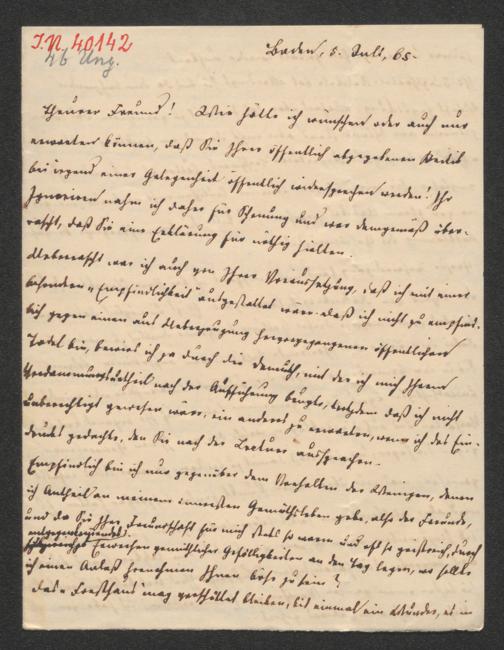 I.N. 40142
46 Ung.
Baden, 5. Juli, 65.
Theurer Freund! Wie hätte ich wünschen oder auch nur
erwarten können, daß Sie Ihrer öffentlich abgegebenen Kritik
bei irgend einer Gelegenheit öffentlich widersprechen werden! Ihr
Ignoriren nahm ich daher für Schonung und war demgemäß über-
rascht, daß Sie eine Erklärung für nöthig hielten.
Ueberrascht war ich auch von Ihrer Voraussetzung, daß ich mit einer
besondern „Empfindlichkeit" ausgestattet wäre. daß ich nicht zu empfind-
lich gegen einen aus Ueberzeugung hervorgegangenen öffentlichen
Tadel bin, bewies ich ja durch die Demuth, mit der ich mich Ihrem
Verdammungsurtheil nach der Aufführung beugte, trotzdem daß ich nicht
unberechtigt gewesen wäre, ein anderes zu erwarten, wenn ich des Ein-
drucks gedachte, den Sie nach der Lectüre aussprachen.
Empfindlich bin ich nur gegenüber dem Verhalten der Wenigen, denen
ich Antheil an meinem innersten Gemüthsleben gebe, also der Freunde,
und da Sie Ihre Freundschaft für mich stets so warm und oft so geistreich, durch
entgegenkommendes
Erweisen gemüthlicher Gefälligkeiten an den Tag legen, wo sollte
ich einen Anlaß hernehmen Ihnen böse zu sein?
Das „Forsthaus" mag verschüttet bleiben, bis einmal ein Wunder, es in